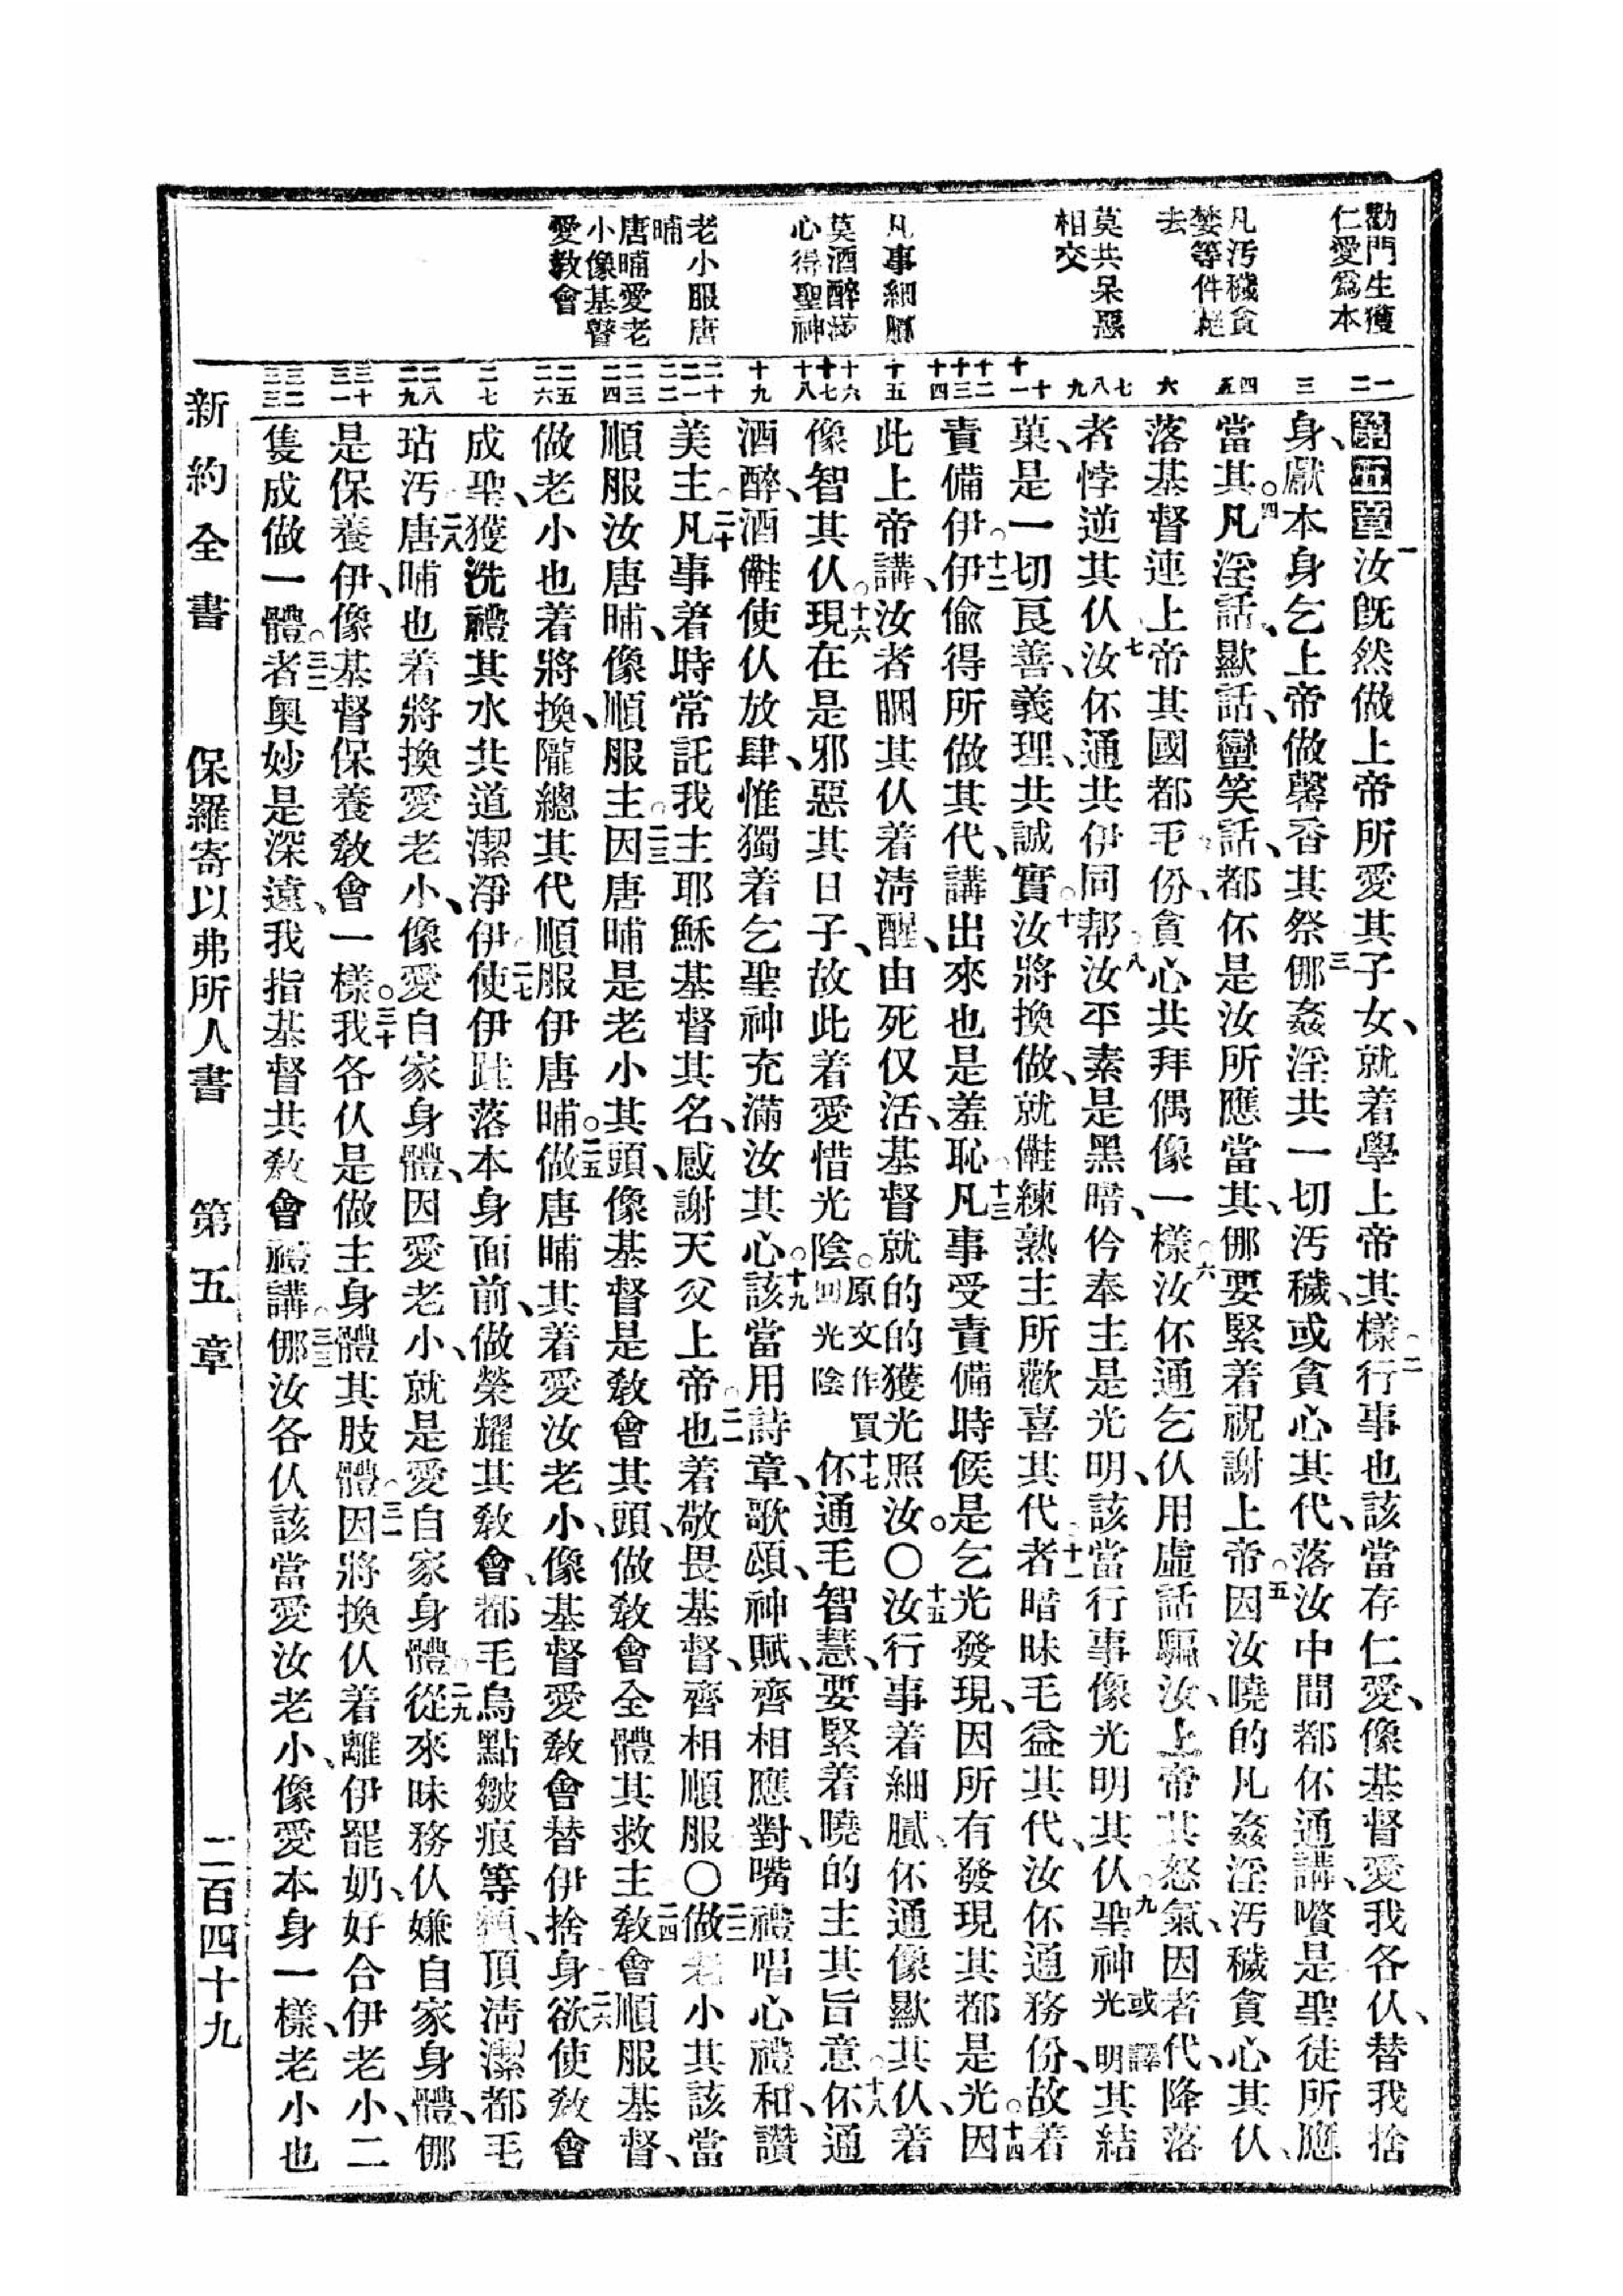 勸門生獲
仁愛爲本
凡汚穢貪
婪等件趕
去
莫共呆惡
相交
凡事細膩
莫酒醉滿
心得聖神
老小服唐
晡
唐晡愛老
小像基督
愛敎會
第五章一汝旣然做上帝所愛其子女、就着學上帝其樣○二行事也該當存仁愛、像基督愛我各仈、替我捨
身、獻本身乞上帝做馨香其祭三㑚姦淫共一切汚穢、或貪心其代、落汝中間都伓通講、嘴是聖徒所應
當其○四凡淫話、歡話、蠻笑話、都伓是汝所應當其、㑚要緊着祝謝上帝○五因汝曉的凡姦淫汚穢貪心其仈、
落基督連上帝其國都毛份、貪心共拜偶像一樣○六汝伓通乞仈用虛話騙汝、上帝其怒氣、因者代、降落
者悖逆其仈七汝伓通共伊同帮○八汝平素是黑暗、仱奉主是光明、該當行事像光明其仈○九聖神或譯光明其結
菓、是一切良善、義理、共誠實○十汝將換做、就𣍐練熟主所歡喜其代○十一者暗昧毛益其代、汝伓通務份、故着
責備伊○十二伊偷得所做其代、講出來也是羞恥○十三凡事受責備時候、是乞光發現、因所有發現其都是光○十四因
此上帝講、汝者睏其仈着淸醒、由死仅活、基督就的的獲光照汝。〇十五汝行事着細膩、伓通像歡其仈、着
像智其仈○十六現在是邪惡其日子、故此着愛惜光陰○原文作買回光陰十七伓通毛智慧、要緊着曉的主其旨意○十八伓通
酒醉、酒𣍐使仈放肆、惟獨着乞聖神充滿汝其心○十九該當用詩章、歌頌、神賦、齊相應對、嘴禮唱心禮和、讚
美主○二十凡事着時常託我主耶穌基督其名、感謝天父上帝○二一也着敬畏基督、齊相順服〇二二做老小其該當
順服汝唐晡、像順服主○二三因唐晡是老小其頭、像基督是敎會其頭、做敎會全體其救主二四敎會順服基督、
做老小也着將換、隴總其代順服伊唐晡○二五做唐晡其着愛汝老小、像基督愛敎會替伊捨身○二六欲使敎會
成聖、獲洗禮其水共道潔淨伊○二七使伊跬落本身面前、做榮耀其敎會、都毛烏點皺痕等類、頂淸潔都毛
玷汚○二八唐晡也着將換愛老小、像愛自家身體、因愛老小、就是愛自家身體○二九從來昧務仈嫌自家身體、㑚
是保養伊、像基督保養敎會一樣○三十我各仈是做主身體其肢體○三一因將換仈着離伊罷奶、好合伊老小、二
隻成做一體○三二者奧妙是深遠、我指基督共敎會禮講○三三㑚汝各仈該當愛汝老小、像愛本身一樣、老小也
新約全書 保羅寄以弗所人書 第五章 二百四十九